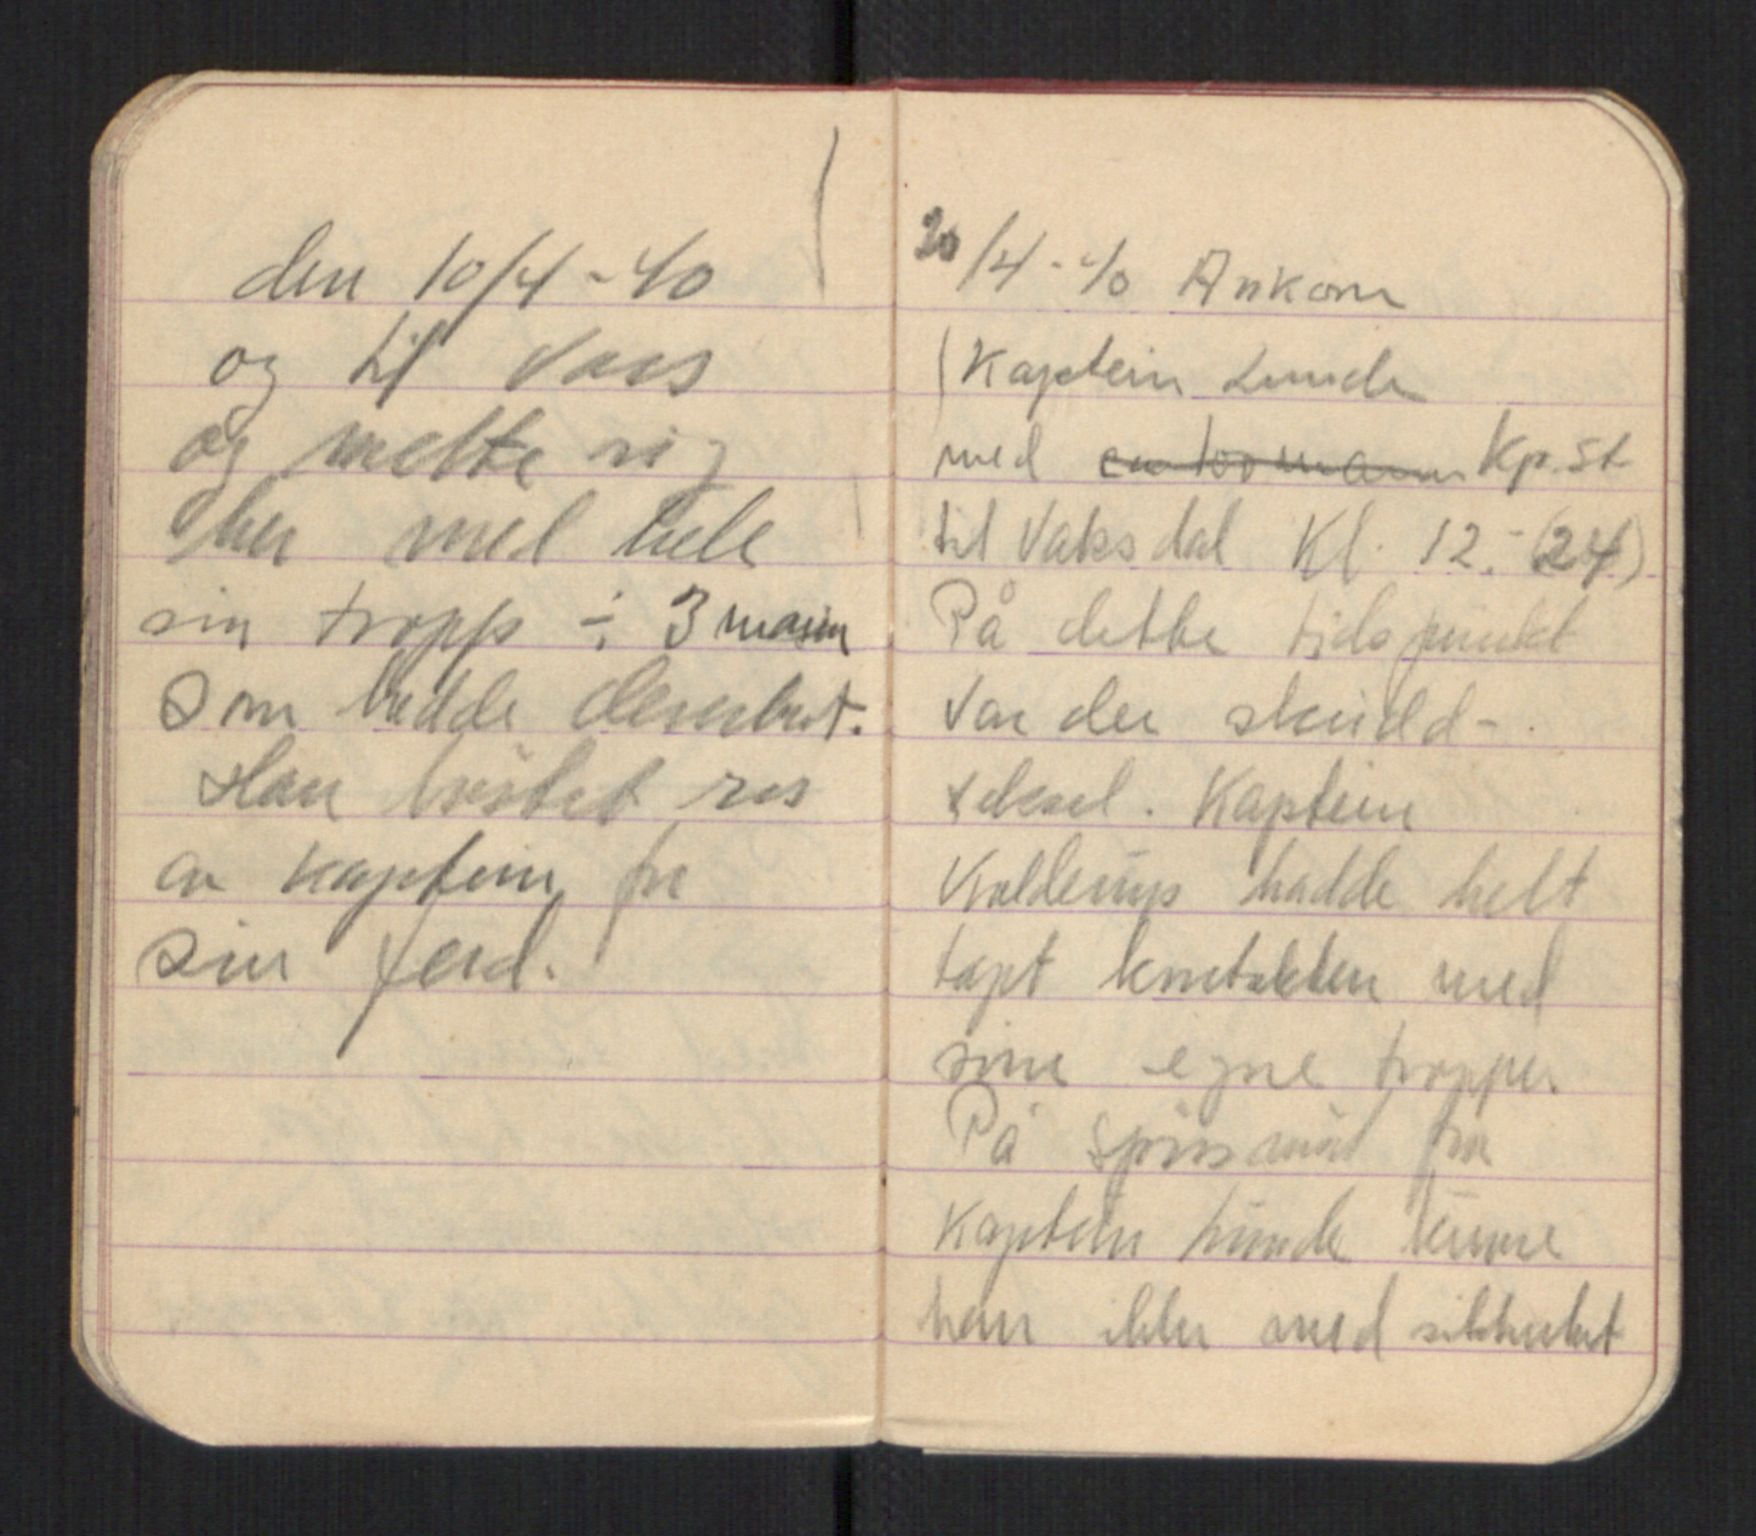 den 10/4 - 40
og til Voss
og melte sig
her med hele
sin tropp ÷ 3 mann
som hadde desertert.
Han høstet ros
av kaptein for
sin ferd.
20/4 - 40 Ankom
(Kaptein Lunde
med ca 100 mann Kp.st
til Vaksdal Kl. 12.- (24)
På dette tidspunkt
var der skudd-
veksel. Kaptein
Kolderup hadde helt
tapt kontakten med
sine egne tropper.
På spørsmål fra
Kaptein Lunde kunne
han ikke med sikkerhet